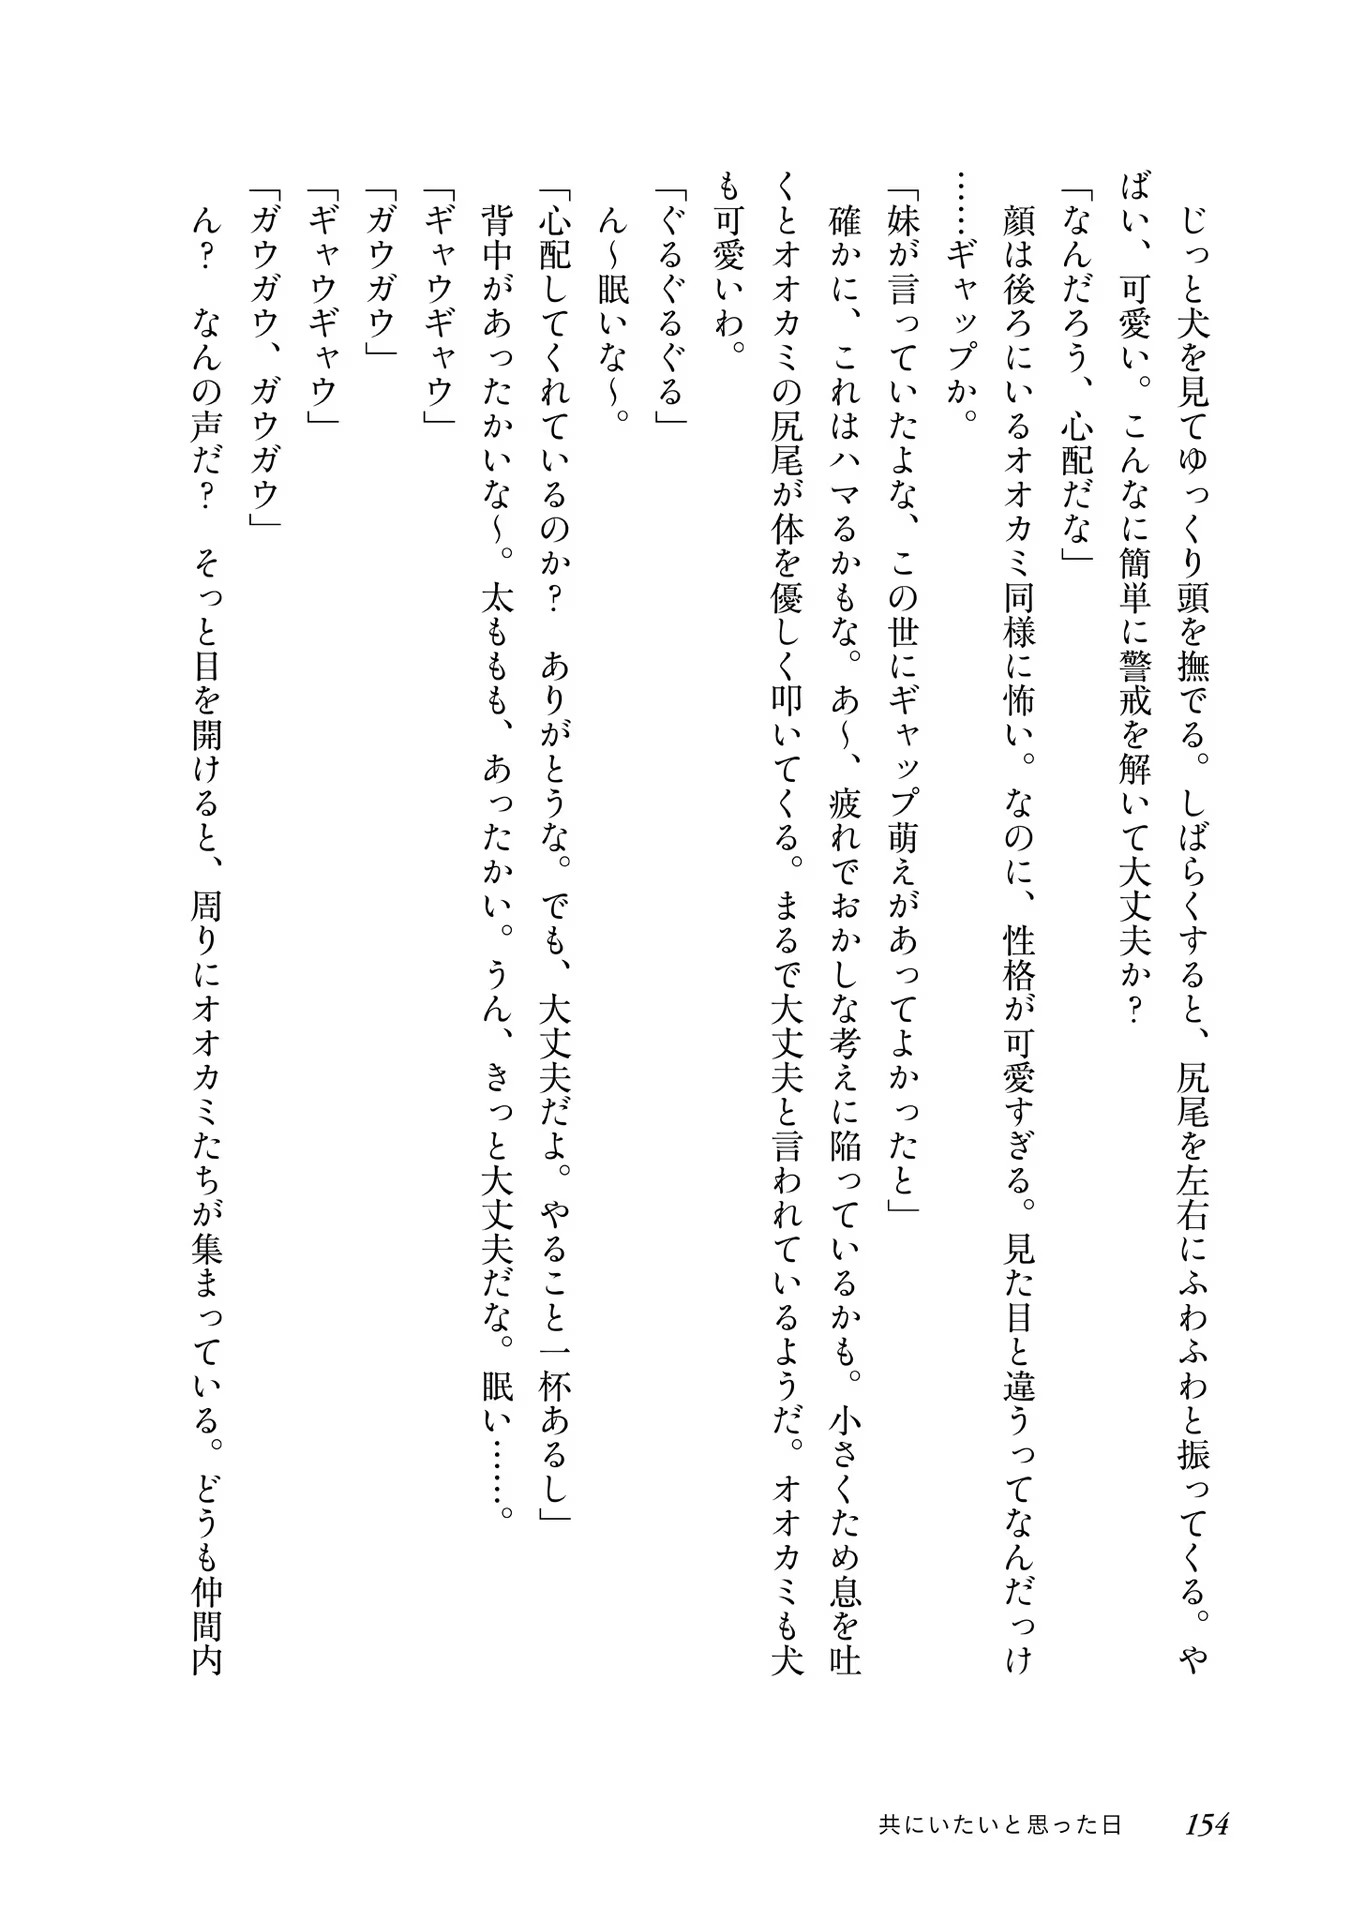 じっと犬を見てゆっくり頭を撫でる。しばらくすると、尻尾を左右にふわふわと振ってくる。や
ばい、可愛い。こんなに簡単に警戒を解いて大丈夫か？
「なんだろう、心配だな」
　顔は後ろにいるオオカミ同様に怖い。なのに、性格が可愛すぎる。見た目と違うってなんだっけ
……ギャップか。
「妹が言っていたよな、この世にギャップ萌えがあってよかったと」
　確かに、これはハマるかもな。あ〜、疲れでおかしな考えに陥っているかも。小さくため息を吐
くとオオカミの尻尾が体を優しく叩いてくる。まるで大丈夫と言われているようだ。オオカミも犬
も可愛いわ。
「ぐるぐるぐる」
　ん〜眠いな〜。
「心配してくれているのか？　ありがとうな。でも、大丈夫だよ。やること一杯あるし」
　背中があったかいな〜。太ももも、あったかい。うん、きっと大丈夫だな。眠い……。
「ギャウギャウ」
「ガウガウ」
「ギャウギャウ」
「ガウガウ、ガウガウ」
　ん？　なんの声だ？　そっと目を開けると、周りにオオカミたちが集まっている。どうも仲間内
共にいたいと思った日　154